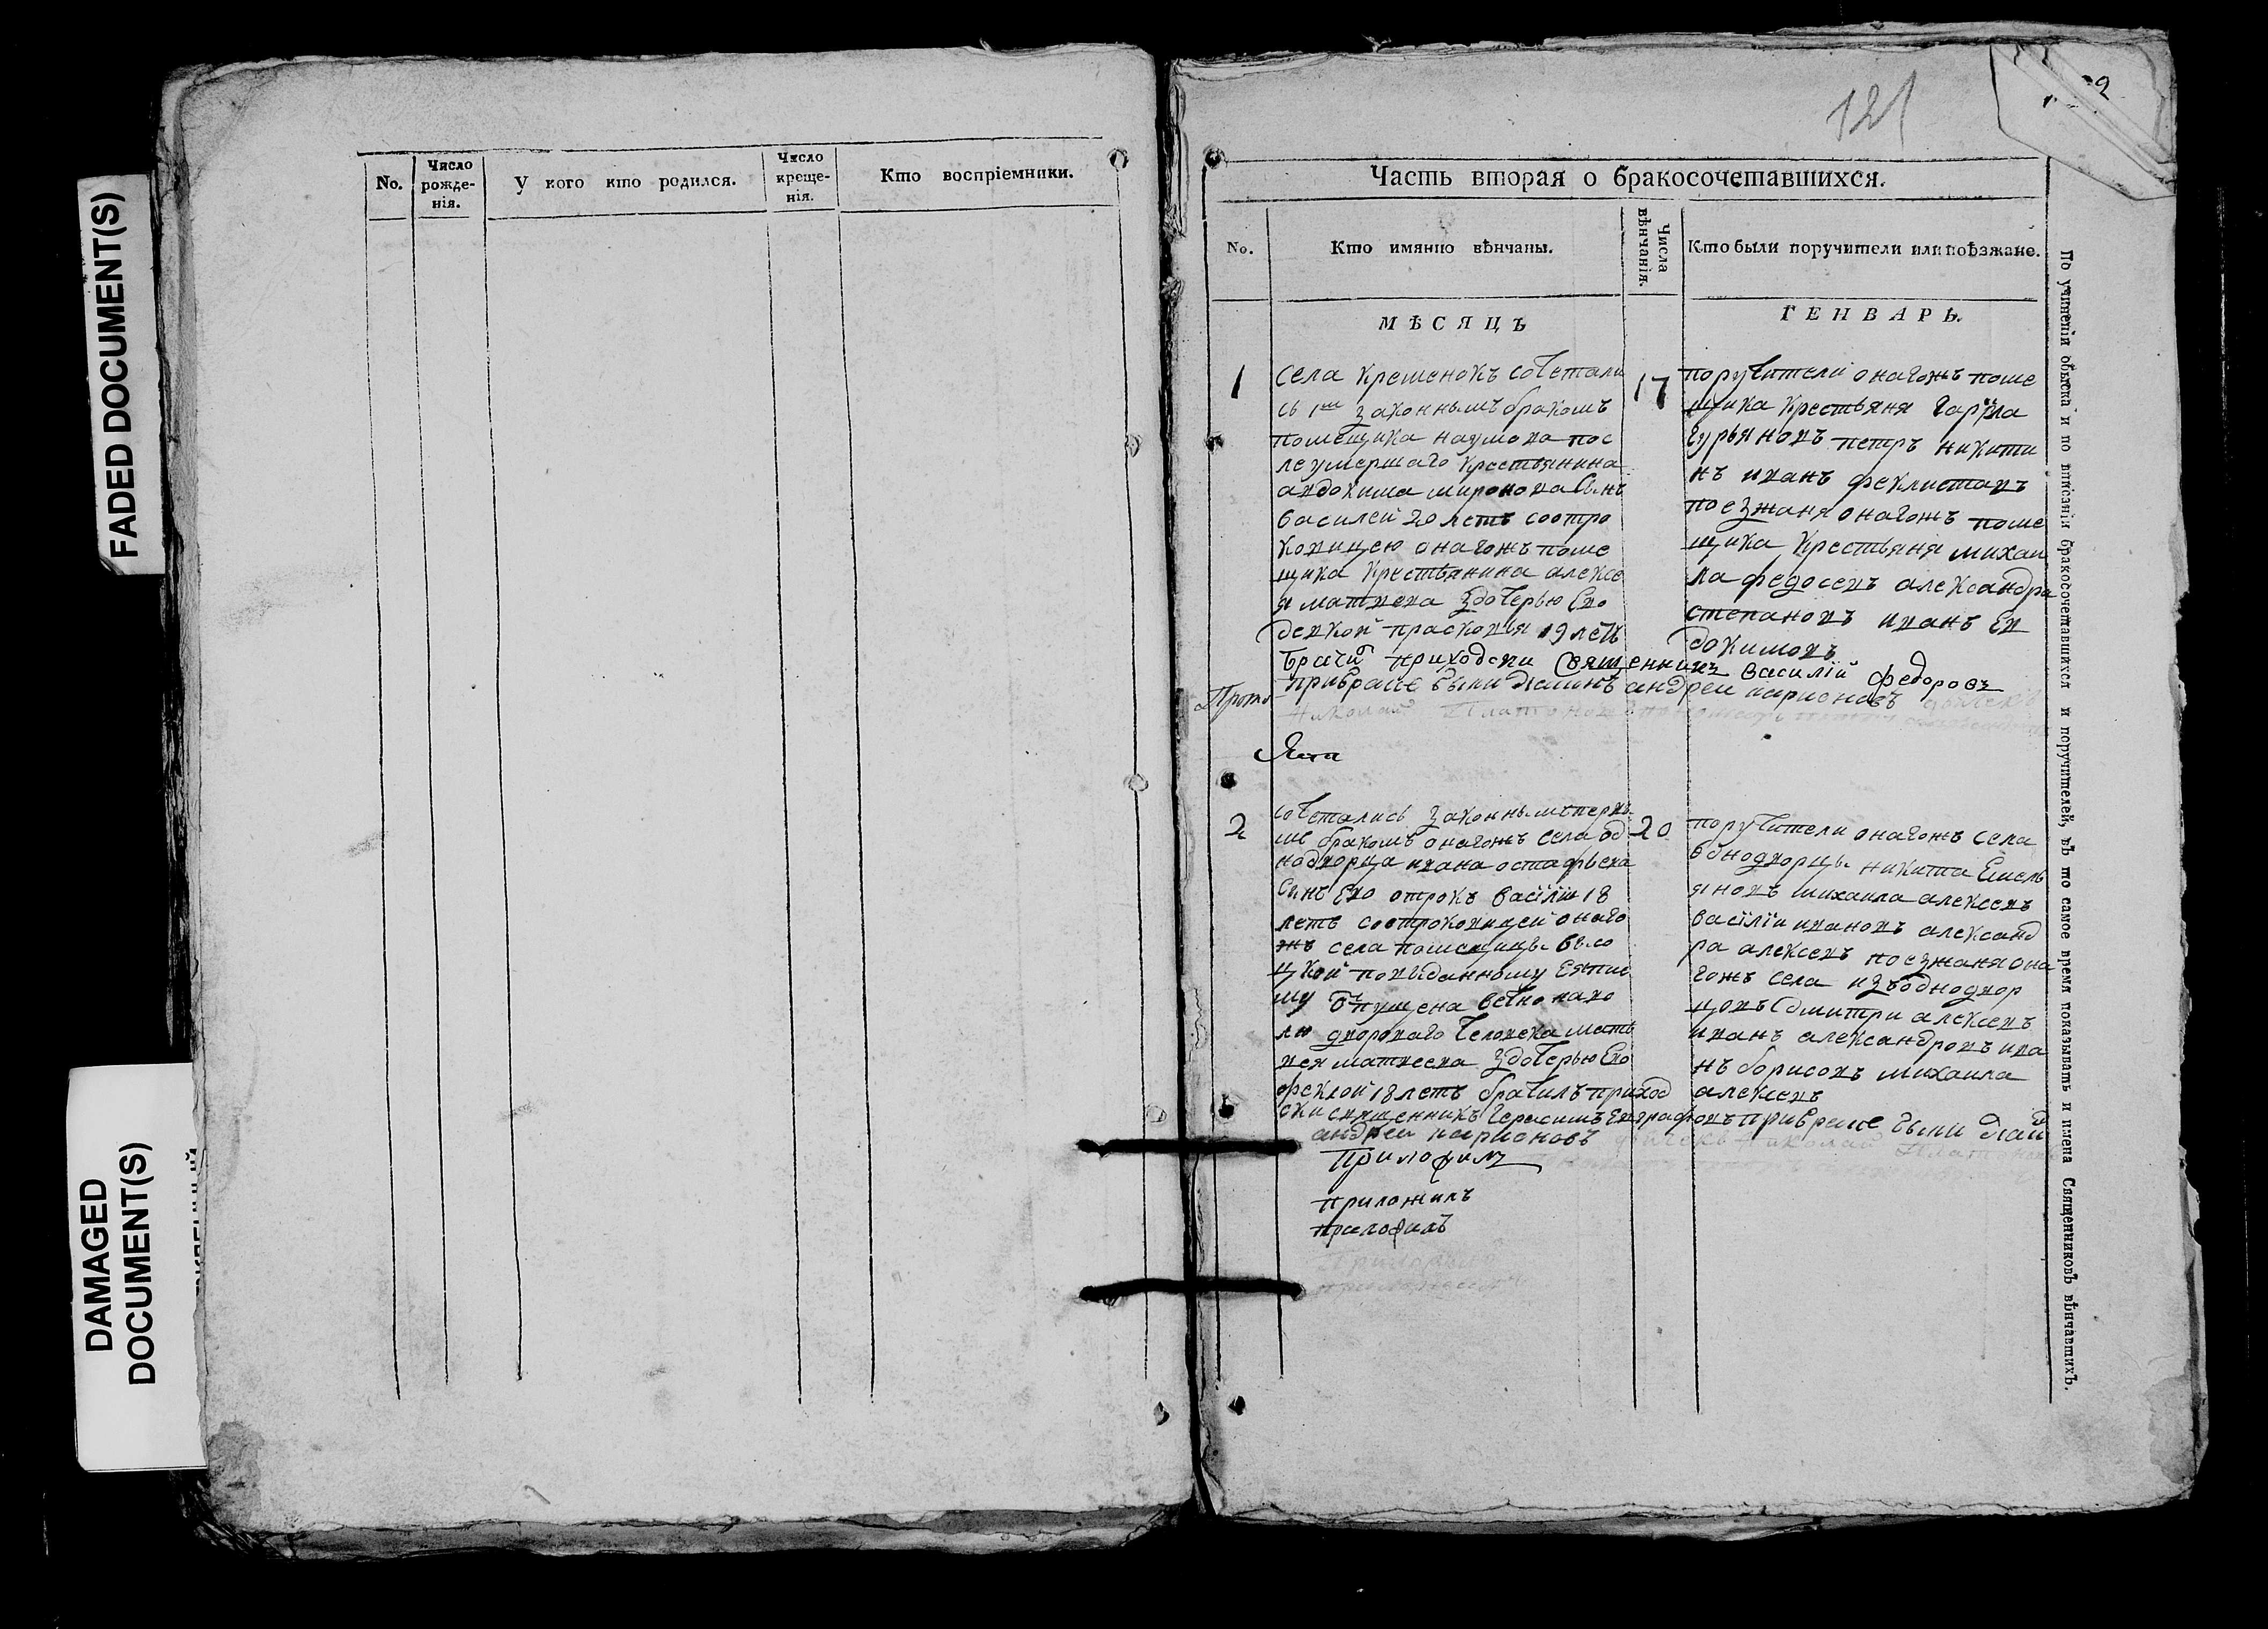 FADED DOCUMENT(S)
DAMAGED
DOCUMENT(S)
No.
Число
рожде-
нія.
У кого кто родился.
Число
креще-
нія.
Кто воспріемники.
121
2
Часть вторая о бракосочетавшихся.
No.
Кто имянно вѣнчаны.
Числа
вѣнчанія.
Кто были поручители или поѣзжане.
МѢСЯЦЪ
ГЕНВАРЬ.
1
села крешенокъ сочетали
сь 1мъ законнымъ бракомъ
помещика наумова пос
ле умершаго крестьянина
авдокима миронова сынъ
василей 20 летъ соотро
ковицею онагожъ поме
щика крестьянина алексе
я матвева здочерью Ево
девкой прасковья 19 летъ
17
поручители онагожъ поме
щика крестьяня гаврила
гурьяновъ петръ никити
нъ иванъ феклистовъ
поезжаня онагожъ поме
щика крестьяня михаи
ла федосевъ александра
степановъ иванъ Ев
докимовъ
Брачил приходски Священникъ Василій федоровъ
при браке были диаконъ андреи ларионовъ
Николай Платонов
2
сочетались законнымъ первы
ме бракомъ онагожъ села од
нодворца ивана остафьева
сынъ Ево отрокъ василіи 18
летъ соотроковицей онаго
жъ села помещицы
цкой по выданному Ея пис
му отпущена вечно наво
лю дворового человека мать
вея матвеева здочерью Ево
феклой 18 летъ брачилъ приход
ски священникъ Герасимъ Евграфовъ при браке были диак
андреи ларионовъ
20
поручители онагожъ села
однодворцы никита Емель
яновъ михаила алексевъ
василіи ивановъ александ
ра алексевъ поезжаня она
гожъ села изъ однодвор
цовъ дмитри алексевъ
иванъ александровъ ива
нъ борисовъ михаила
алексевъ
приложилъ
По учиненіи обыска и по вписаніи бракосочетавшихся и поручителей, въ то самое время показывать и имена Священниковъ вѣнчавшихъ.